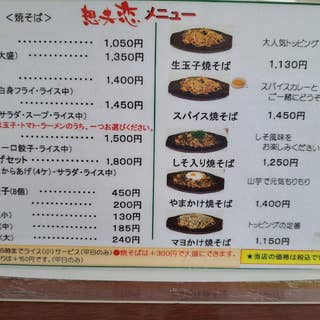 想夫恋 メニュー
<焼そば>
1,050円
大盛) 1,350円
1,400円
白身フライ・ライス中)
1,450円
サラダ・スープ・ライス中)
玉子・トマト・ラーメンのうち、一つお選びください。
1,500円
一口餃子・ライス中)
げセット 1,800円
からあげ(4ケ)・サラダ・ライス中)
子(8個) 450円
200円
(小) 130円
(中) 185円
(大) 240円
時までライス(小)サービス(平日のみ)
りは+150円です。(平日のみ)
●焼そばは+300円で大盛にできます。
大人気トッピング
生玉子焼そば 1,130円
スパイスカレーと
ご一緒にどうぞ
スパイス焼そば 1,450円
しそ風味を
お楽しみください
しそ入り焼そば 1,250円
山芋で元気もりもり
やまかけ焼そば 1,200円
トッピングの定番
マヨかけ焼そば 1,150円
★当店の価格は税込です